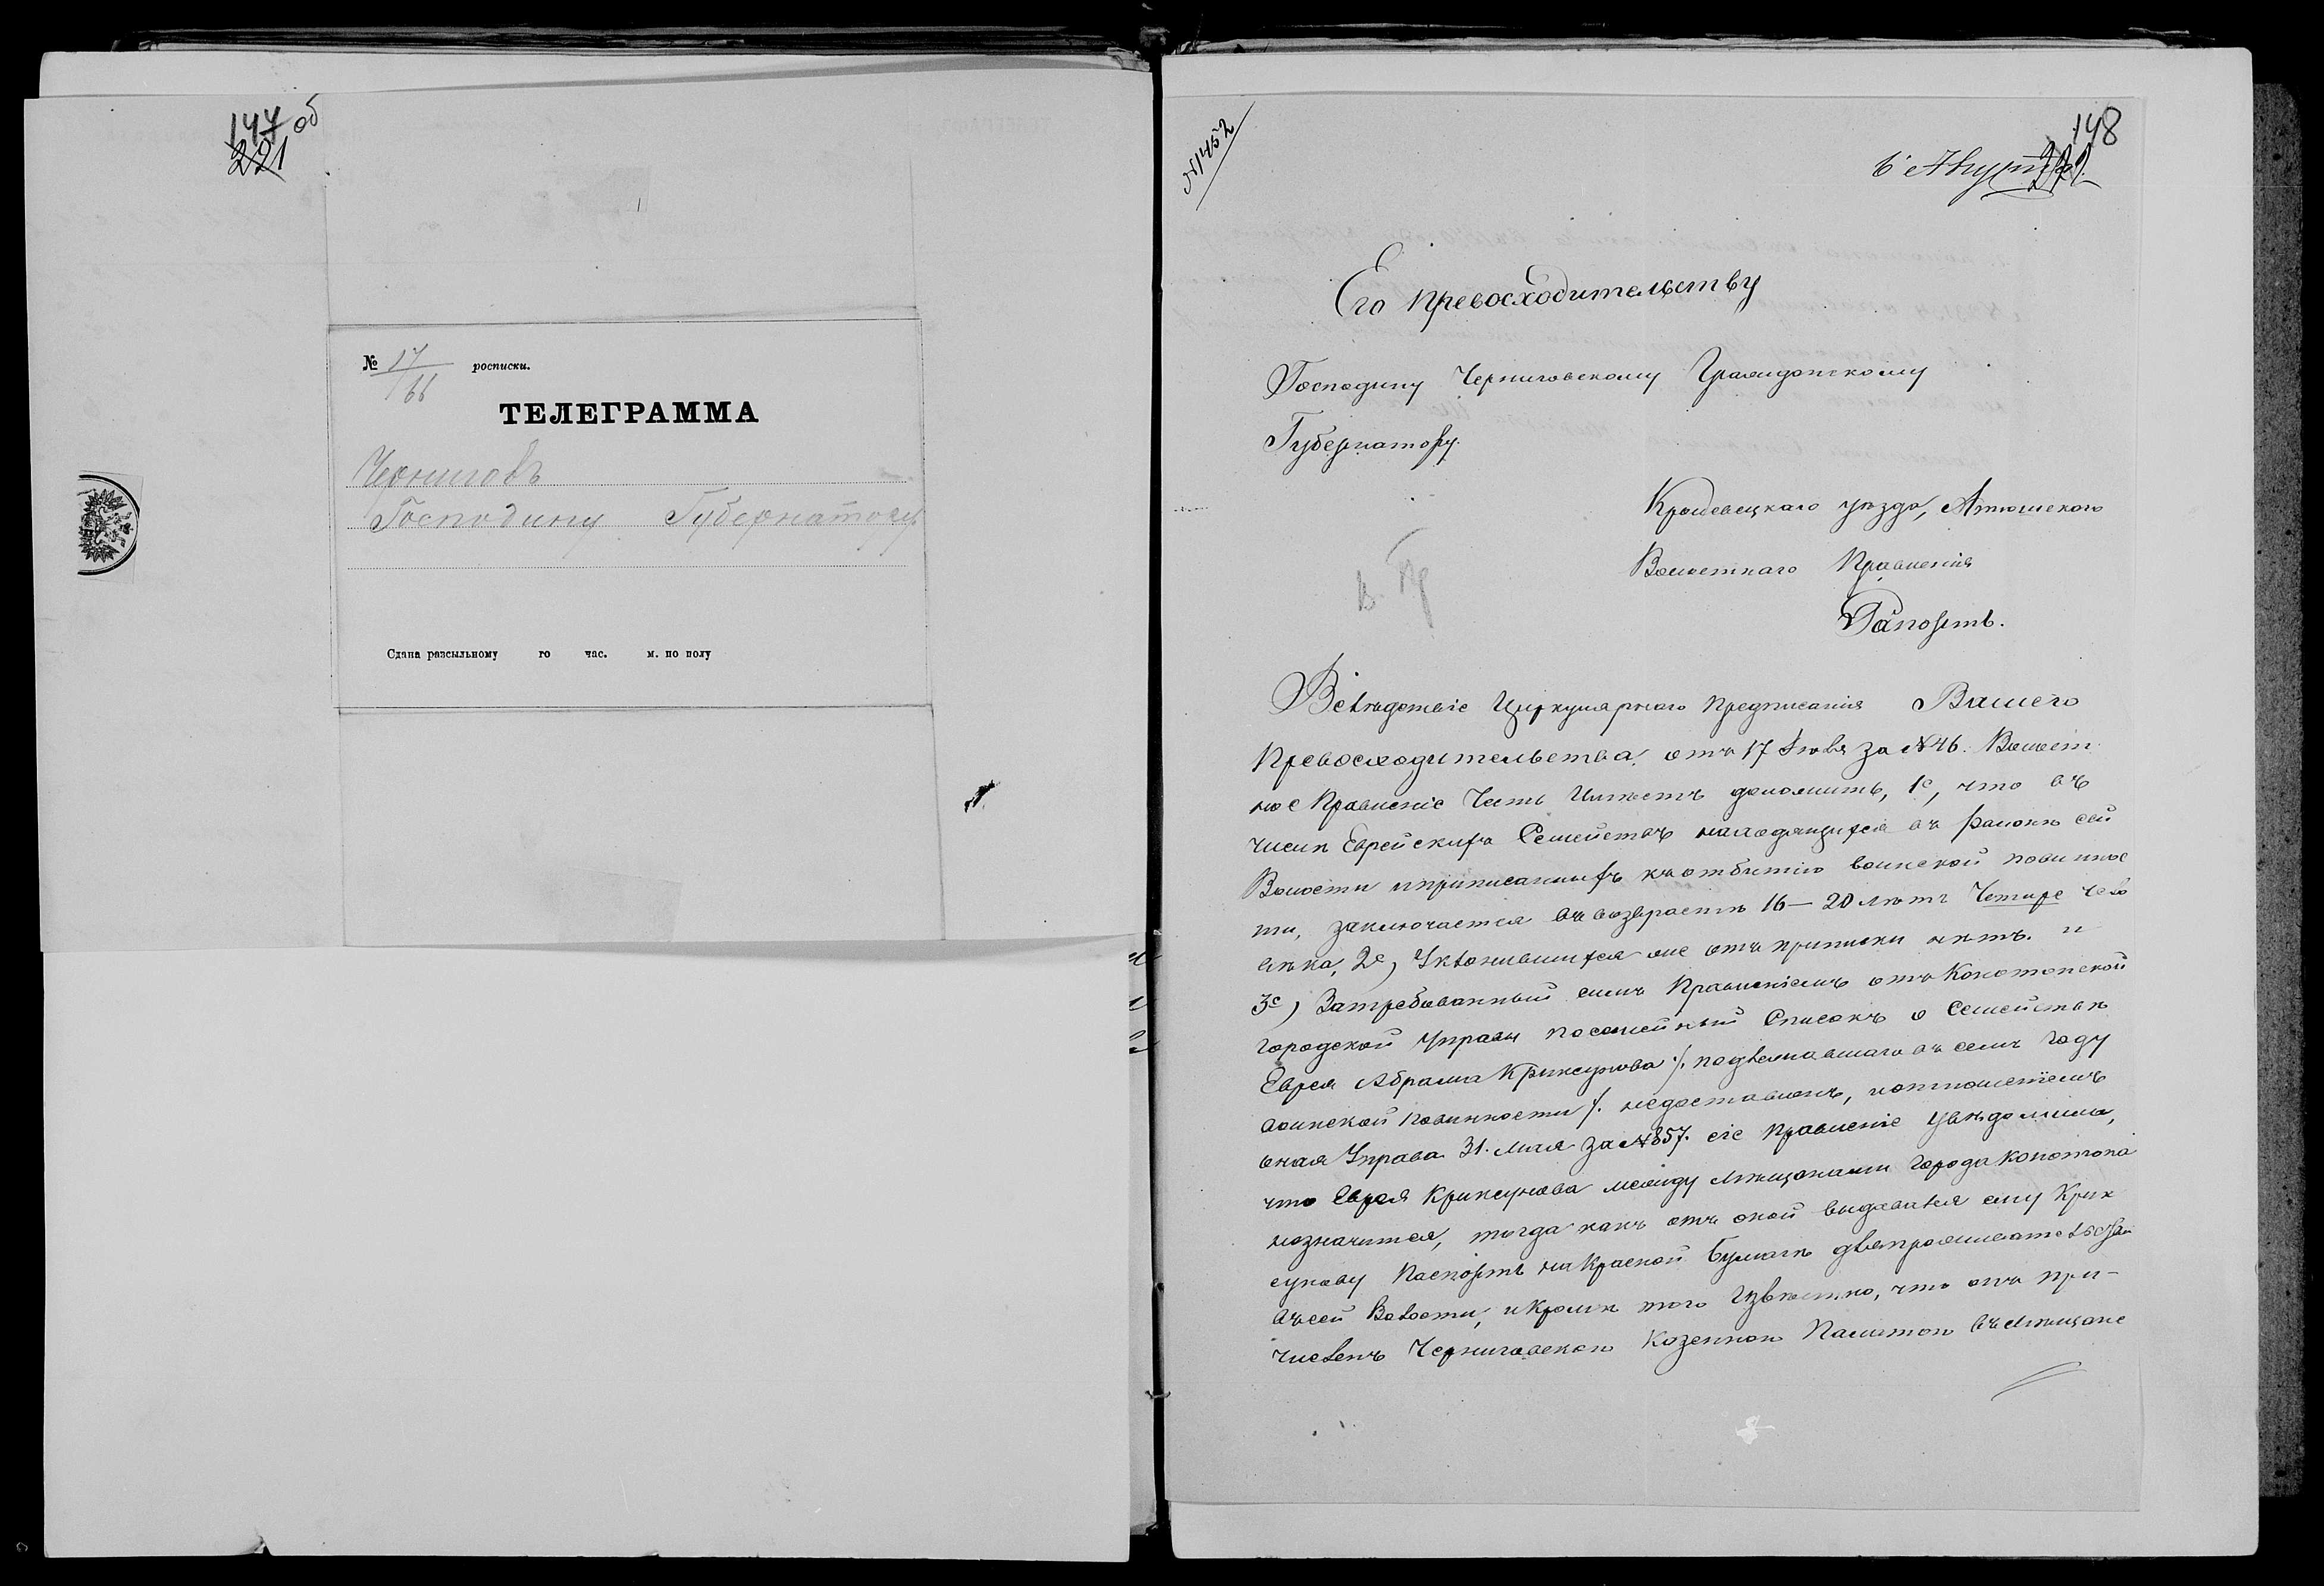 147 об
221
№ 17/66 росписки.
ТЕЛЕГРАММА
Черниговъ
Господину Губернатору
Сдана разсыльному го час. м. по полу
№ 1452
148
6 Августа
Его Превосходительству
Господину Черниговскому Гражданскому
Губернатору.
Кролевецкаго уѣзда, Атюшского
Волостнаго Правленія
Рапортъ.
Вслѣдствіе Циркулярнаго Предписанія Вашего
Превосходительства, отъ 17 Іюля за №46. Волост
ное Правленіе Честь Имѣетъ доложить, 1е, что въ
числѣ Еврейскихъ Семействъ находящихся въ районѣ сей
Волости и приписанныхъ къ отбытію воинской повиннос
ти, заключается въ возврастѣ 16—20 лѣтъ Четыре чело
вѣка, 2е, Уклонившихся же отъ приписки нѣтъ. и
3е) Затребованный симъ Правленіемъ отъ Конотопской
городской Управы посемейный Списокъ о Семействѣ
Еврея Абрама Криксунова /. подлежавшаго въ семъ году
воинской повинности /. недоставленъ, и отношеніемъ
оная Управа 31. Мая за №857. сіе Правленіе увѣдомила,
что Еврея Криксунова между мѣщанами города Конотопа
незначится, тогда какъ отъ оной выдавался ему Крик
сунову Паспортъ на Красной Бумагѣ для
въ сей Волости, и Кромѣ того Извѣстно, что онъ при-
численъ Черниговскою Казенною Палатою въ мѣщане